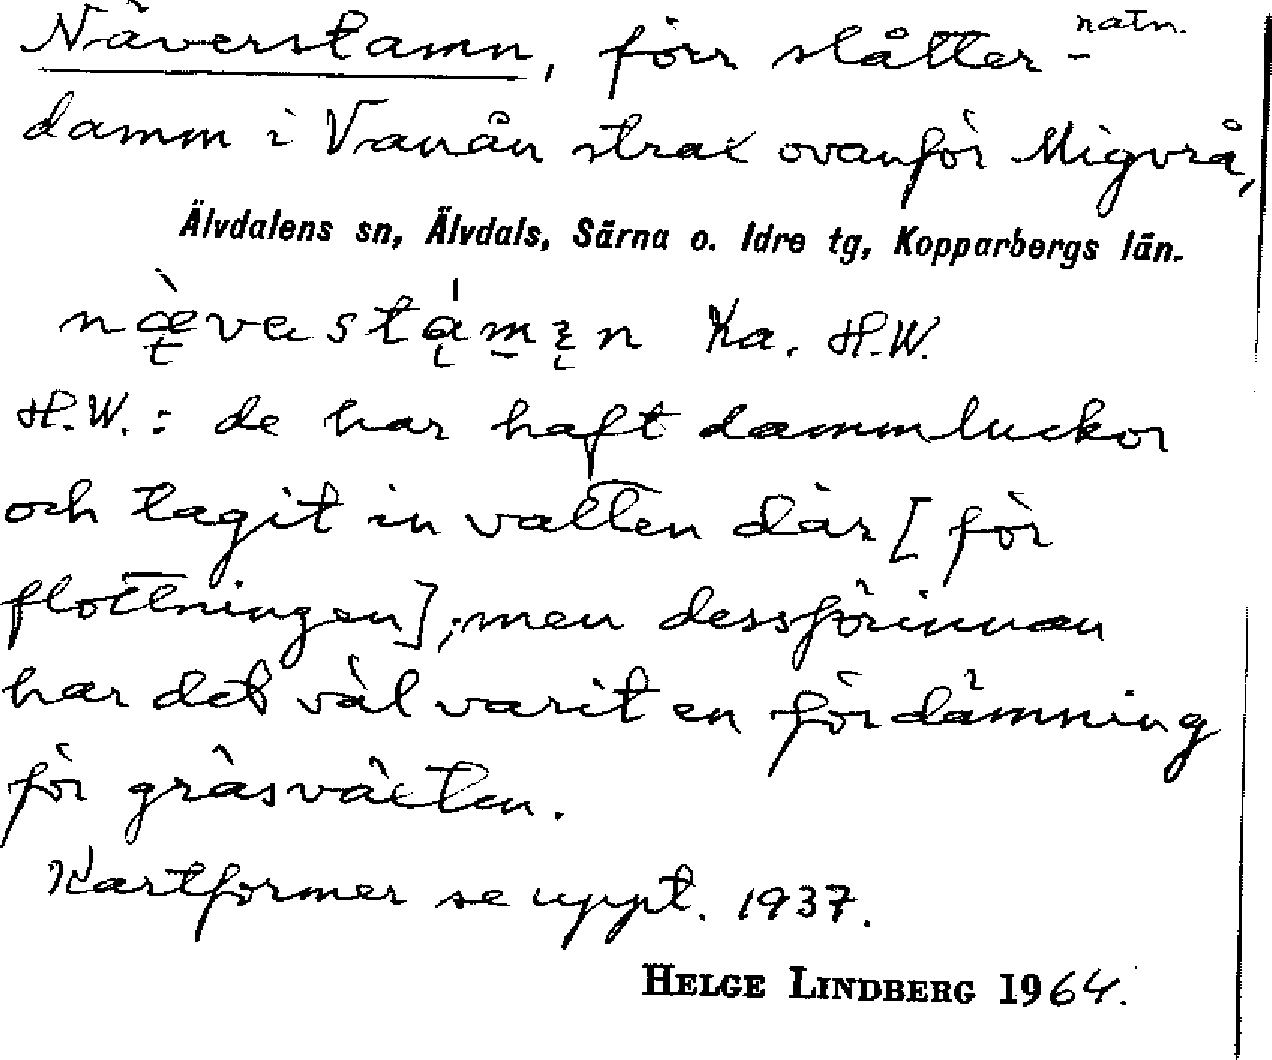 Näverstamn, förr slåtter- natn.
damm i Vanån strax ovanför Migvrå,
Älvdalens sn, Älvdals, Särna o. Idre tg, Kopparbergs län.
Ka. H.W.
H.W.: de har haft dammluckor
och tagit in vatten där [för
flottningen]; men dessförinnan
har det väl varit en fördämning
för gräsväxten.
Kartformer se uppt. 1937.
HELGE LINDBERG 1964.